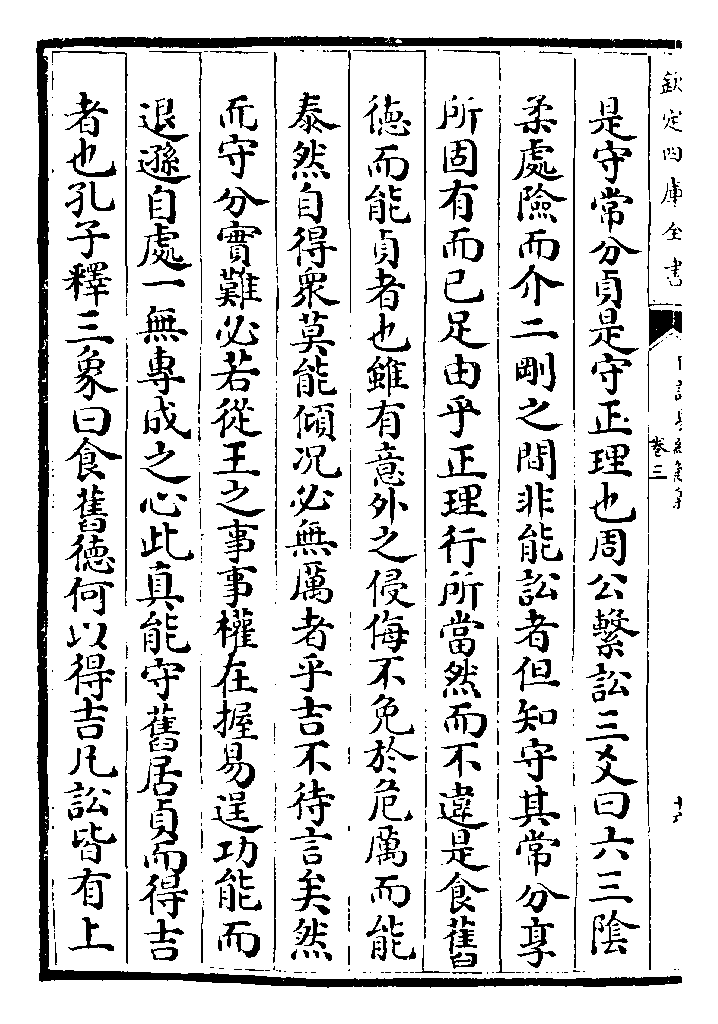 欽定四庫全書
卷三
是守常分貞是守正理也周公繫訟三爻曰六三陰
柔處險而介二剛之間非能訟者但知守其常分享
所固有而已足由乎正理行所當然而不違是食舊
德而能貞者也雖有意外之侵侮不免於危厲而能
泰然自得衆莫能傾况必無厲者乎吉不待言矣然
而守分實難必若從王之事事權在握易逞功能而
退遜自處一無專成之心此真能守舊居貞而得吉
者也孔子釋三象曰食舊德何以得吉凡訟皆有上